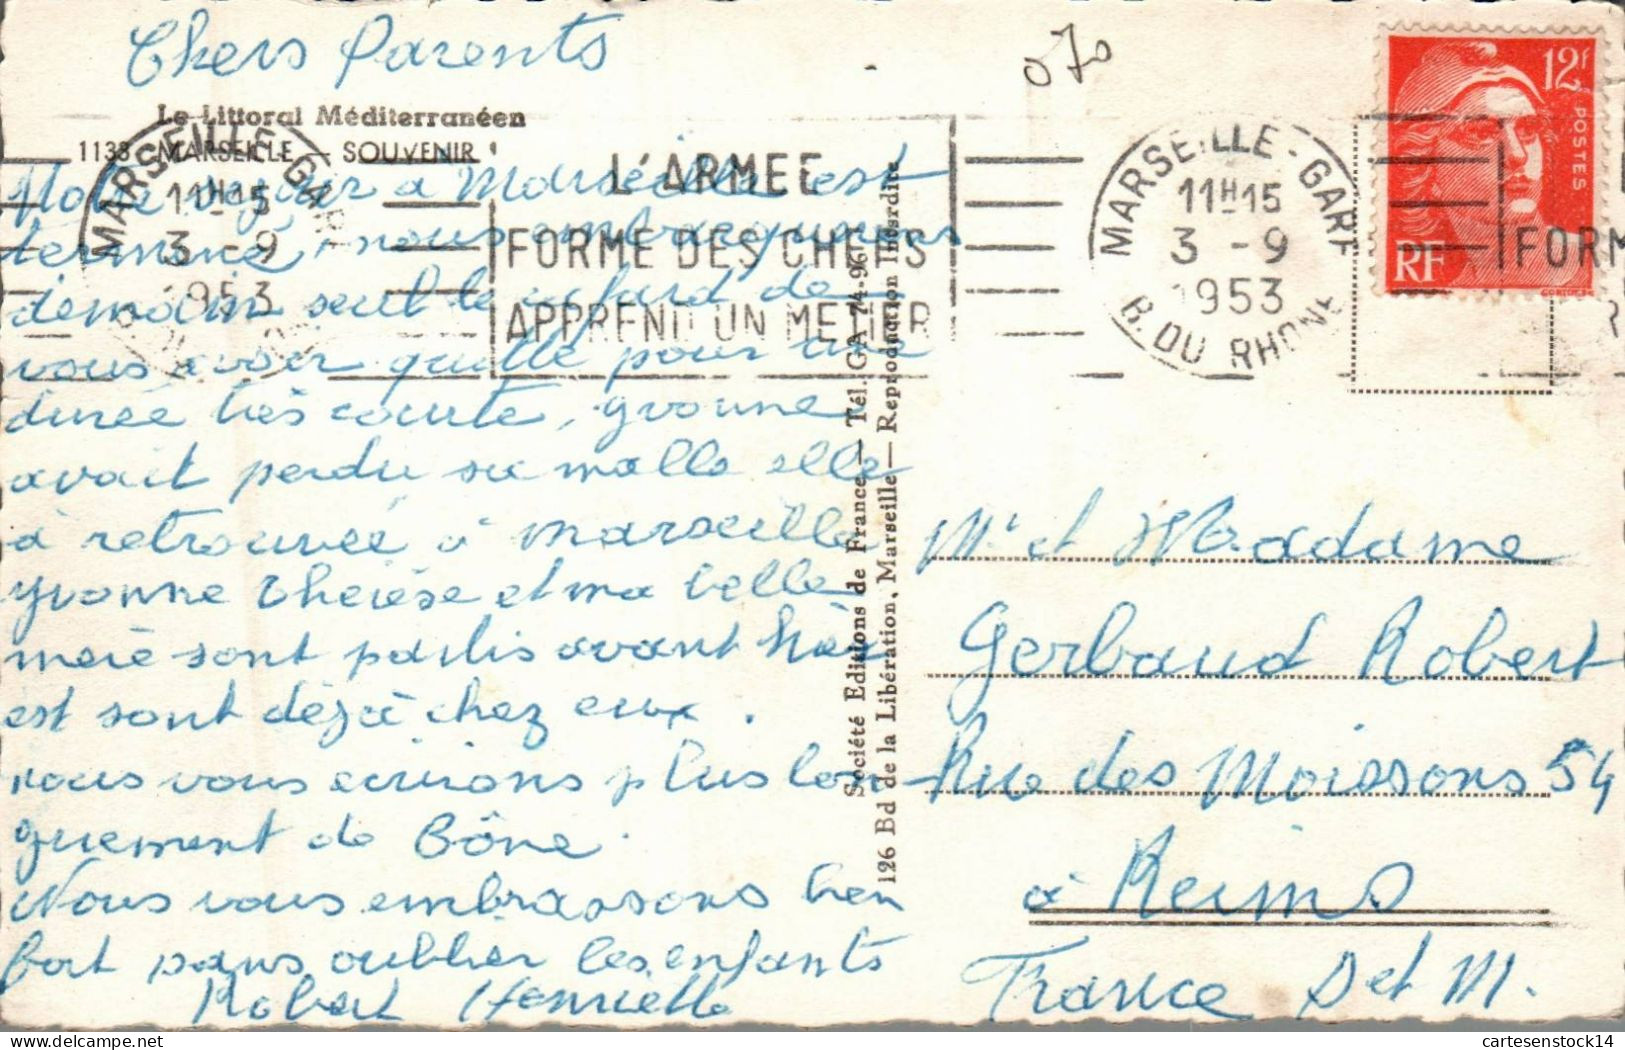 Chers Parents
070
Le Littoral Méditerranéen
1133 MARSEILLE - SOUVENIR
MARSEILLE - GARE
11H15
3 - 9
1953
L'ARMEE
FORME DES CHEFS
APPREND UN METIER
MARSEILLE - GARE
11H15
3 - 9
1953
B. DU RHONE
FORM
12F
POSTES
RF
Notre séjour à Marseille est
terminé, nous embarquerons
demain seul le cafard de
vous avoir quitté pour une
durée très courte, yvonne
avait perdu sa malle elle
à retrouvée à Marseille
yvonne Thérèse et ma belle
mère sont partis avant hier
est sont déjà chez eux.
nous vous ecrirons plus lon-
guement de Bône.
Nous vous embrassons bien
fort sans oublier les enfants
Robert Henriette
Société Editions de France — Tél. GA 74-96
126 Bd de la Libération, Marseille — Reproduction Interdite
Mr et Madame
Gerbaud Robert
Rue des Moissons 54
à Reims
France Set M.
cartesenstock14